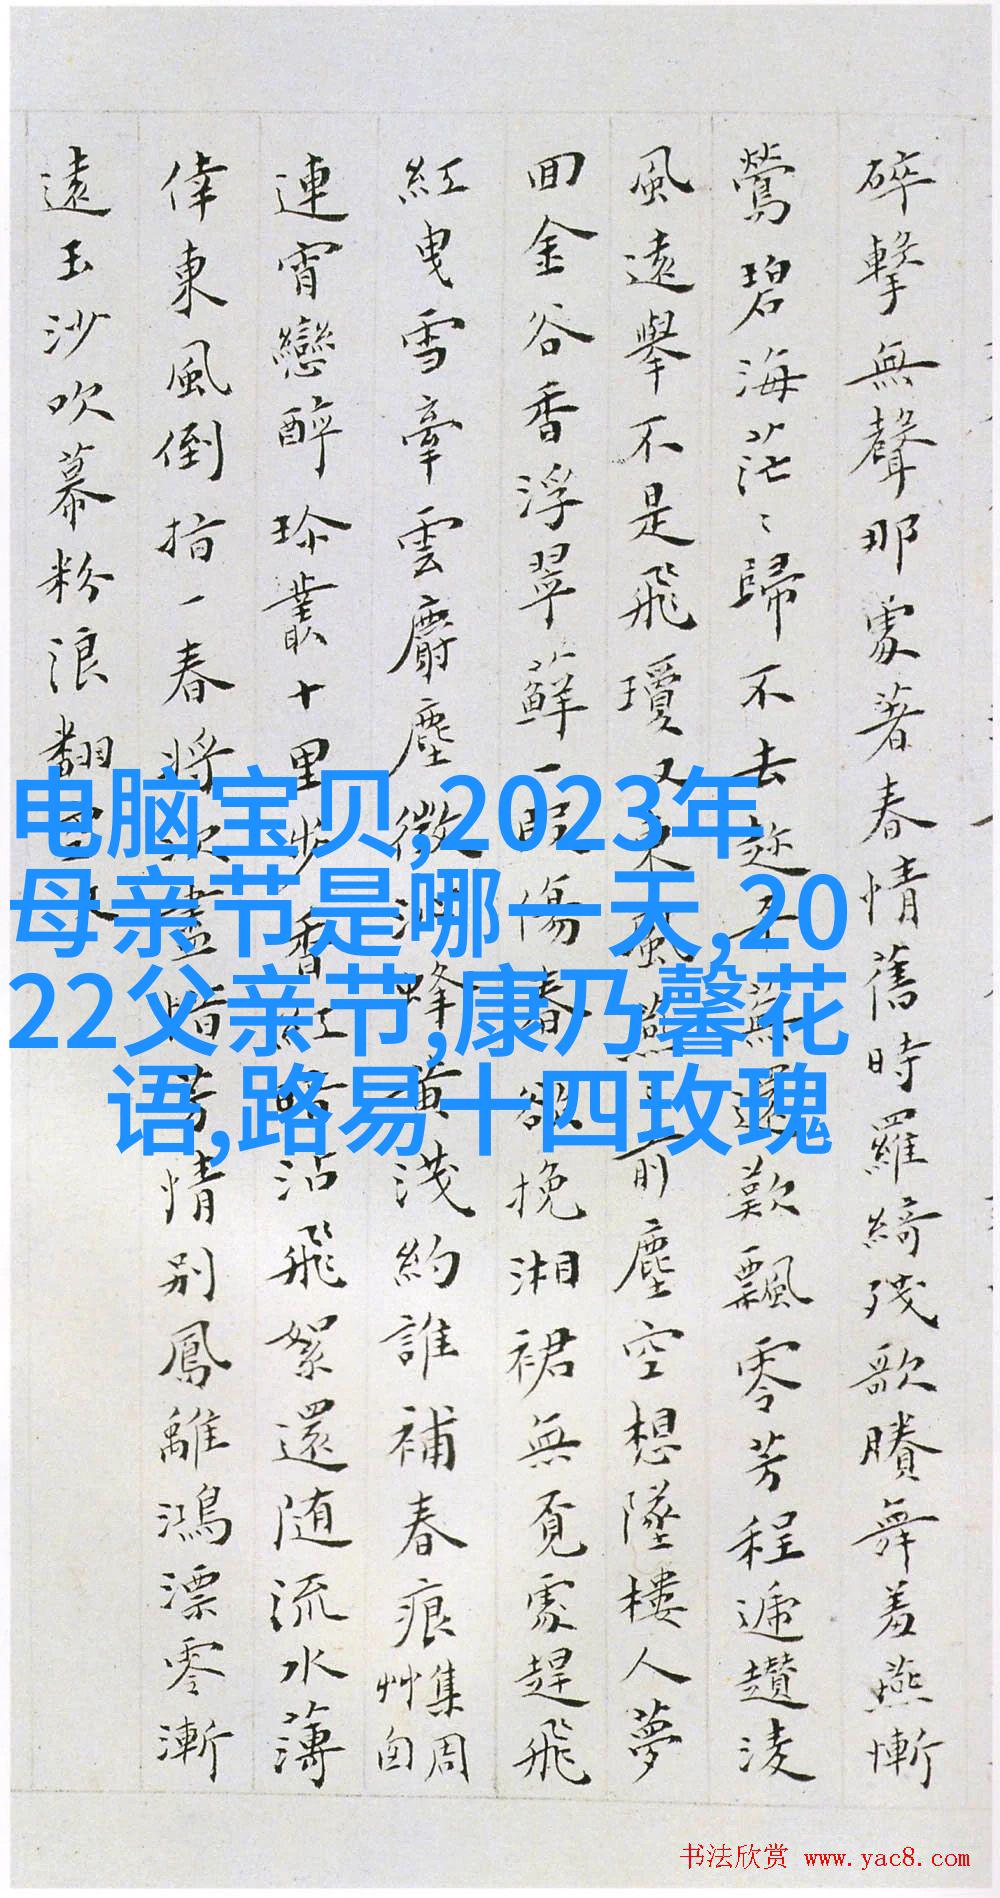 碎擊無聲那處著春情舊時羅綺殘歌賸舞羞燕慚
鶯碧海茫〻歸不去趁
還歎飄零芳程遞趲淩
風遠舉不是飛瓊又
前塵空想墜樓人夢
回金谷香浮翠蘚一
傷春欲挽湘裙無覓處趕飛
紅曳雪牽雲麝塵微
蜂黃淺約誰補春痕
集周
艸囪
連宵戀醉珍叢十里
香紅
沾飛絮還随流水薄
倖東風倒指一春將
盡惜芳情別鳳離鴻漂零漸
遠玉沙吹幕粉浪翻
电脑宝贝,2023年
母亲节是哪一天,20
22父亲节,康乃馨花
语,路易十四玫瑰
书法欣赏 www.yac8.com